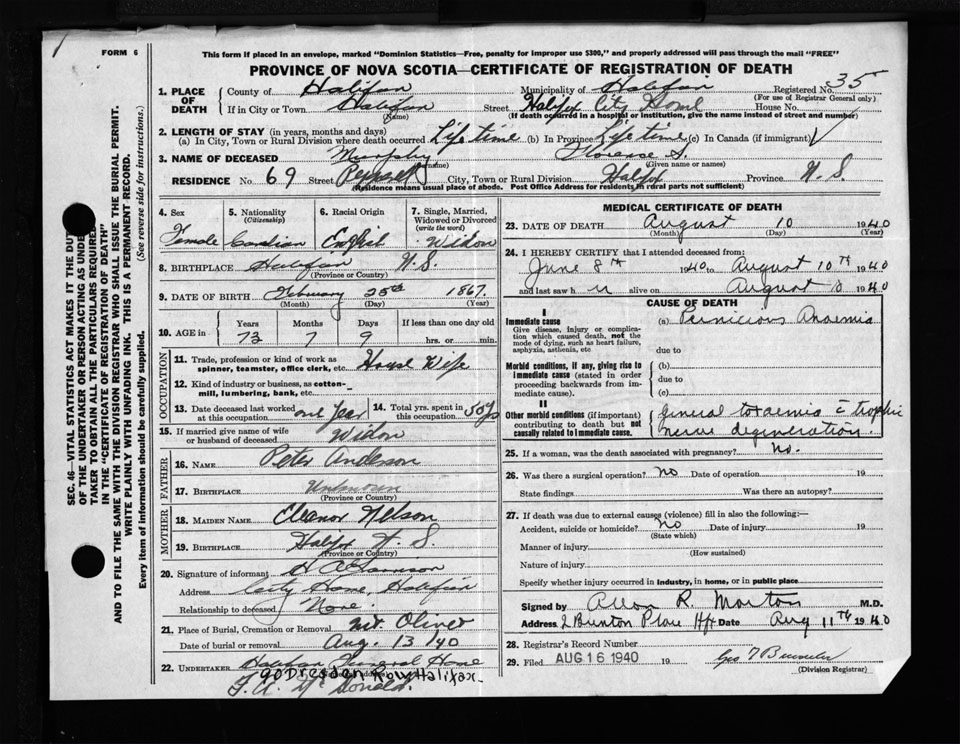 FORM 6
This form if placed in an envelope, marked "Dominion Statistics—Free, penalty for improper use $300," and properly addressed will pass through the mail "FREE"
PROVINCE OF NOVA SCOTIA—CERTIFICATE OF REGISTRATION OF DEATH
SEC. 46—VITAL STATISTICS ACT MAKES IT THE DUTY
OF THE UNDERTAKER OR PERSON ACTING AS UNDER
TAKER TO OBTAIN ALL THE PARTICULARS REQUIRED
IN THE "CERTIFICATE OF REGISTRATION OF DEATH"
AND TO FILE THE SAME WITH THE DIVISION REGISTRAR WHO SHALL ISSUE THE BURIAL PERMIT.
WRITE PLAINLY WITH UNFADING INK. THIS IS A PERMANENT RECORD.
Every item of information should be carefully supplied. (See reverse side for instructions.)
1. PLACE OF DEATH County of Halifax Municipality of Halifax Registered No. 35
(For use of Registrar General only)
If in City or Town Halifax Street Halifx City Home House No.
(Name) (If death occurred in a hospital or institution, give the name instead of street and number)
2. LENGTH OF STAY (in years, months and days)
(a) In City, Town or Rural Division where death occurred Life time (b) In Province Life time (c) In Canada (if immigrant)
3. NAME OF DECEASED Murphy Florence
(Given name or names)
RESIDENCE No. 69 Street City, Town or Rural Division Halifx Province N.S
(Residence means usual place of abode. Post Office Address for residents in rural parts not sufficient)
4. Sex Female
5. Nationality (Citizenship) Canadian
6. Racial Origin English
7. Single, Married, Widowed or Divorced (write the word) Widow
8. BIRTHPLACE Halifax N.S.
(Province or Country)
9. DATE OF BIRTH February 25th 1867.
(Month) (Day) (Year)
10. AGE in Years Months Days If less than one day old
73 7 9 hrs. or min.
OCCUPATION
11. Trade, profession or kind of work as spinner, teamster, office clerk, etc. House Wife
12. Kind of industry or business, as cotton-mill, lumbering, bank, etc.
13. Date deceased last worked at this occupation one year 14. Total yrs. spent in this occupation 50 yrs
15. If married give name of wife or husband of deceased Widow
FATHER
16. NAME Peter Anderson
17. BIRTHPLACE Unknown
(Province or Country)
MOTHER
18. MAIDEN NAME Eleanor Nelson
19. BIRTHPLACE Halifx N.S
(Province or Country)
20. Signature of informant H
Address City Home, Halifax
Relationship to deceased None.
21. Place of Burial, Cremation or Removal Mt. Oliver
Date of burial or removal Aug. 13/40
22. UNDERTAKER Halifax Funeral Home
90 Dresden Row Halifax
McDonald.
MEDICAL CERTIFICATE OF DEATH
23. DATE OF DEATH August 10 1940
(Month) (Day) (Year)
24. I HEREBY CERTIFY that I attended deceased from:
June 8th 1940 to August 10th 1940
and last saw h er alive on August 10 1940
CAUSE OF DEATH
I
Immediate cause (a) Pernicious Anaemia
Give disease, injury or complication which caused death, not the mode of dying, such as heart failure, asphyxia, asthenia, etc due to
Morbid conditions, if any, giving rise to immediate cause (stated in order proceeding backwards from immediate cause). (b)
due to
(c)
II
Other morbid conditions (if important) contributing to death but not causally related to immediate cause. General toxaemia c trophic
nerve degeneration.
25. If a woman, was the death associated with pregnancy? No.
26. Was there a surgical operation? No Date of operation 19
State findings Was there an autopsy?
27. If death was due to external causes (violence) fill in also the following:—
Accident, suicide or homicide? No Date of injury 19
(State which)
Manner of injury
(How sustained)
Nature of injury
Specify whether injury occurred in industry, in home, or in public place
Signed by Allan R. Morton M.D.
Address 2 Place Hfx Date Aug 11th 1940
28. Registrar's Record Number
29. Filed AUG 16 1940 19
(Division Registrar)